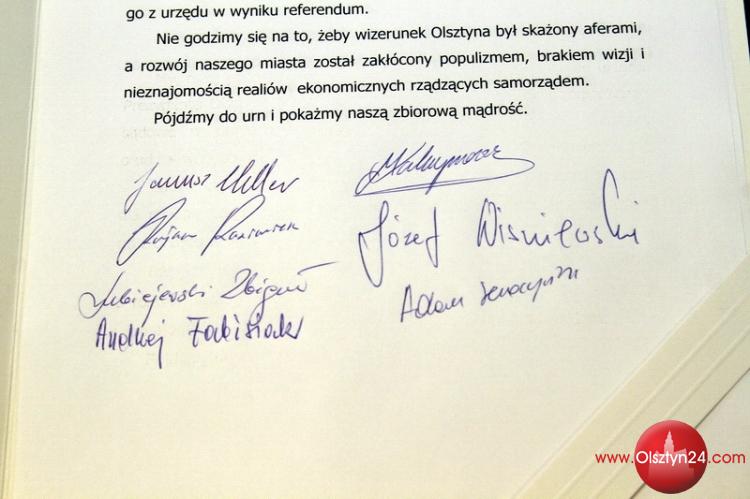 go z urzędu w wyniku referendum.
Nie godzimy się na to, żeby wizerunek Olsztyna był skażony aferami,
a rozwój naszego miasta został zakłócony populizmem, brakiem wizji i
nieznajomością realiów ekonomicznych rządzących samorządem.
Pójdźmy do urn i pokażmy naszą zbiorową mądrość.
Janusz
Kazimierz
Józef Wiśniewski
Zbigniew
Adam
Andrzej Fabisiak
www.Olsztyn24.com